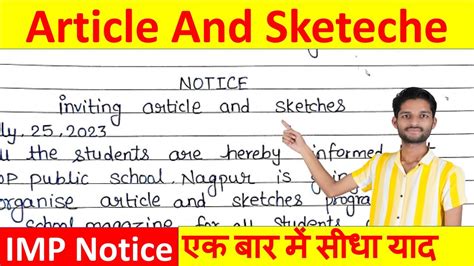 Article And Sketeche
NOTICE
inviting article and sketches
ly, 25, 2023
the students are hereby informed
public school, Nagpur is
organise article and sketches progra
school magazine for all students
IMP Notice एक बार में सीधा याद